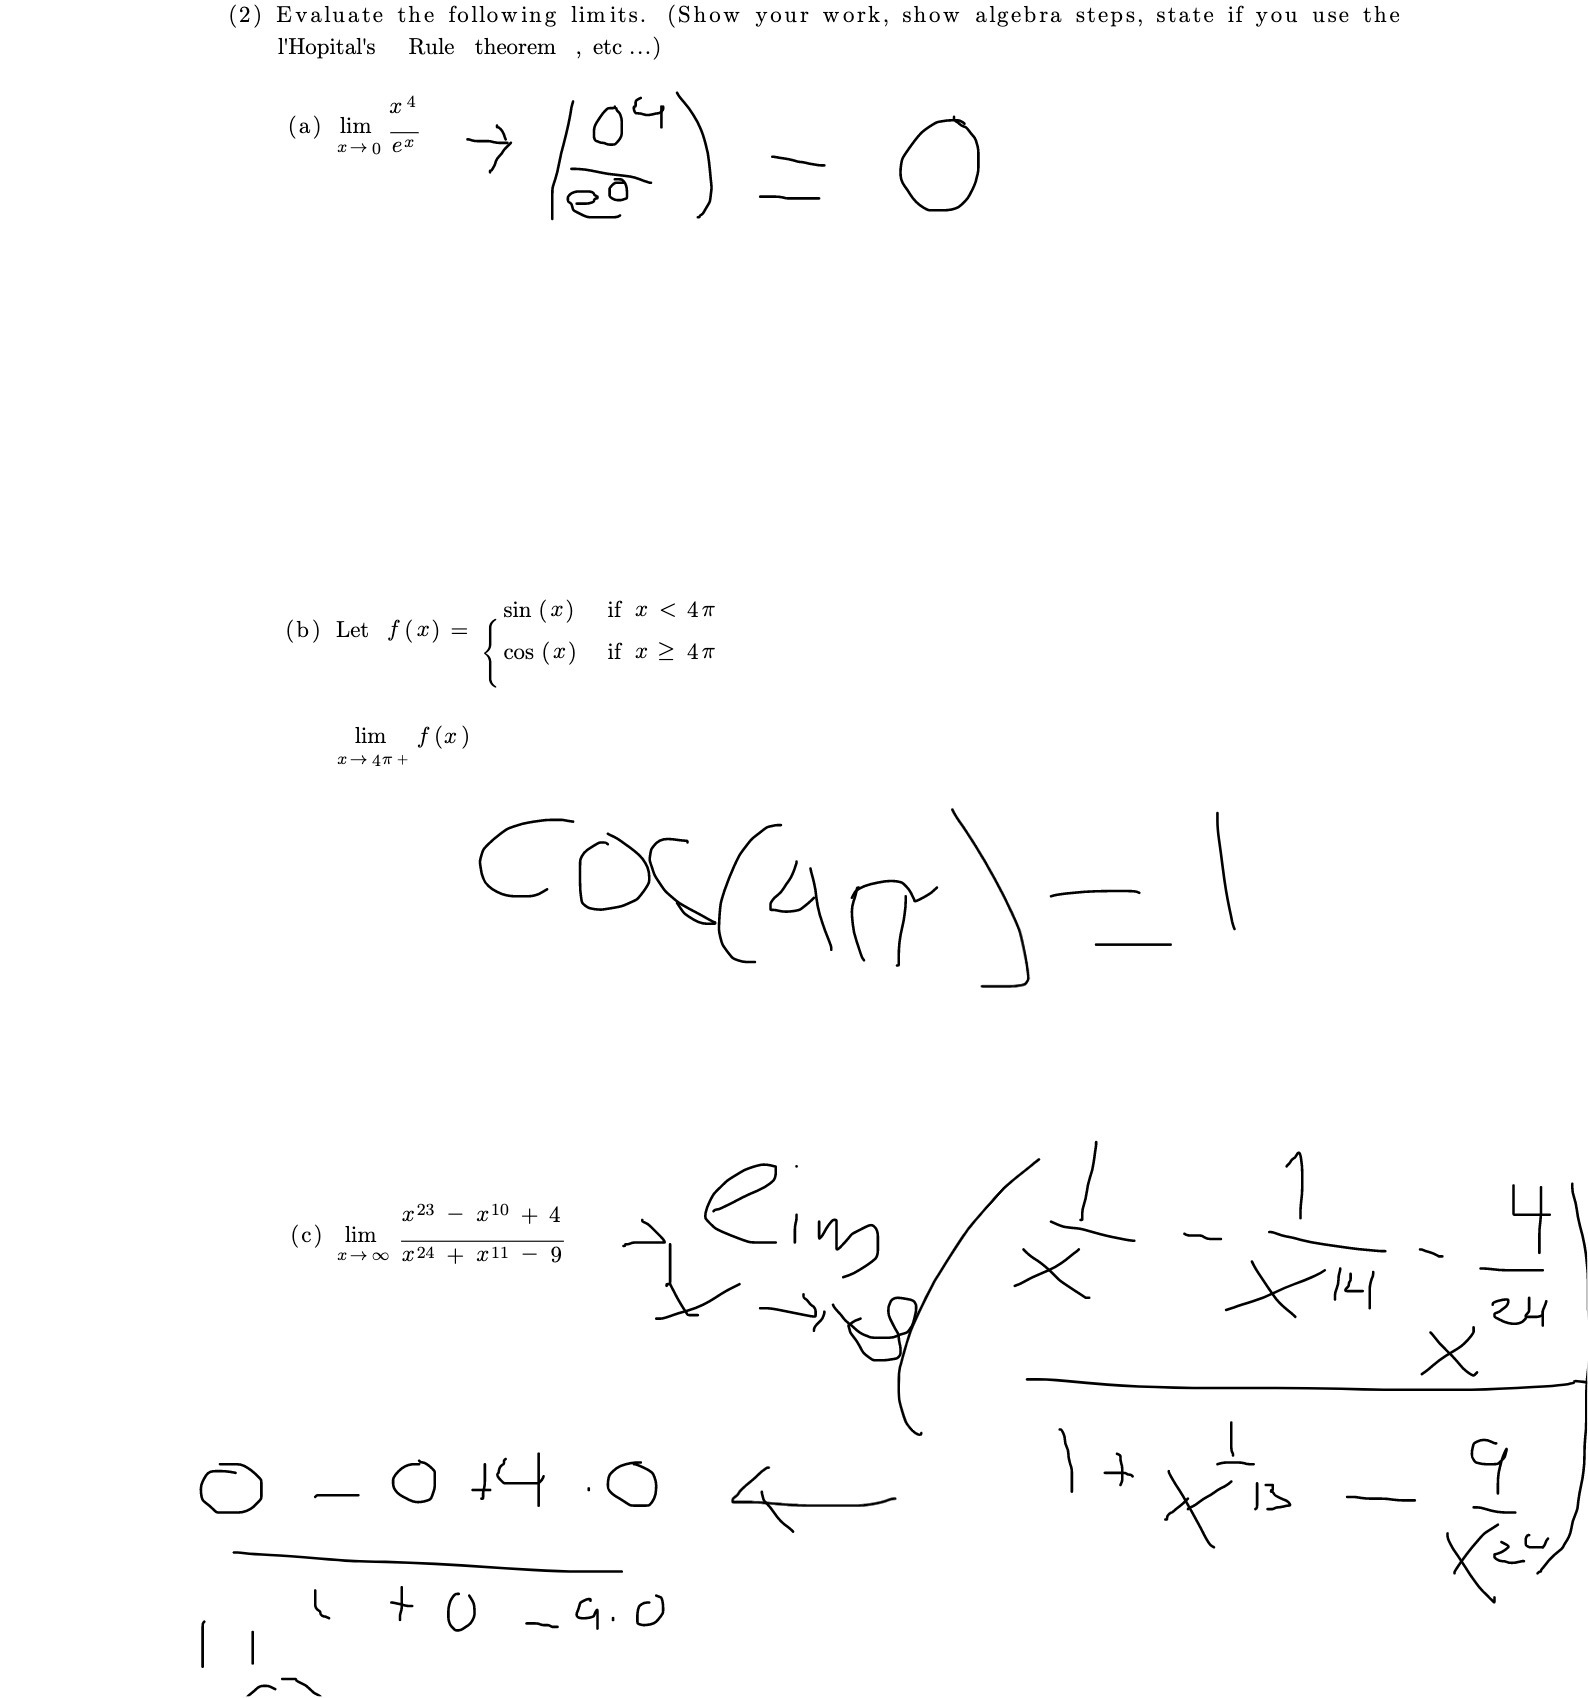 (2) Evaluate the following limits. (Show your work, show algebra steps, state if you use the
l'Hopital's Rule theorem , etc ...)
(a) lim x→0 x^4/e^x → (0^4/e^0) = 0
(b) Let f(x) = { sin (x) if x < 4π
cos (x) if x ≥ 4π
lim x→4π+ f(x)
cos(4π) = 1
(c) lim x→∞ (x^23 − x^10 + 4)/(x^24 + x^11 − 9) → lim x→∞ ((1/x − 1/x^14 - 4/x^24)/(1 + 1/x^13 − 9/x^24))
← (0 − 0 + 4.0)/(1 + 0 − 9.0)